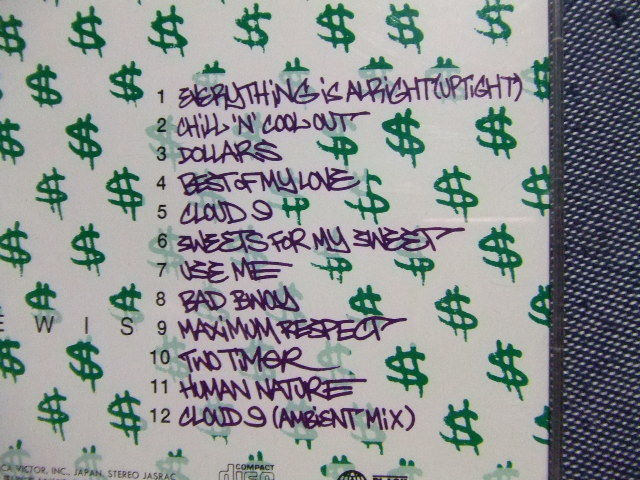 1 EVERYTHING IS ALRIGHT (UPTIGHT)
2 CHILL 'N' COOL OUT
3 DOLLARS
4 BEST OF MY LOVE
5 CLOUD 9
6 SWEETS FOR MY SWEET
7 USE ME
8 BAD BWOY
E W I S
9 MAXIMUM RESPECT
10 TWO TIMER
11 HUMAN NATURE
12 CLOUD 9 (AMBIENT MIX)
CA VICTOR, INC., JAPAN. STEREO JASRAC
COMPACT disc
BLACK